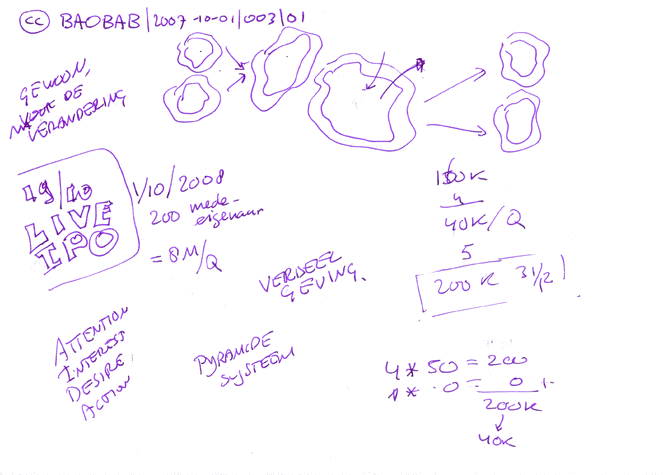 cc BAOBAB | 2007-10-01 | 003 | 01
GEWOON,
VOOR DE
VERANDERING
19/10
LIVE
IPO
1/10/2008
200 mede-
eigenaar
= 8M/Q
VERDEEL
GEVING.
160K
4
40K/Q
5
200K 31/12
ATTENTION
INTEREST
DESIRE
ACTION
PYRAMIDE
SYSTEEM
4 * 50 = 200
0 = 0 +
200K
40K